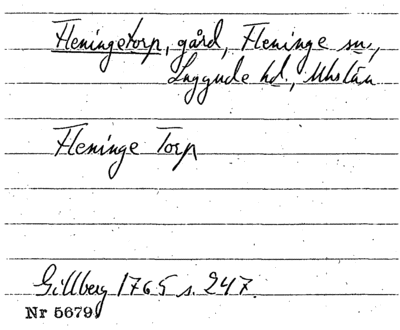 Fleningetorp, gård, Fleninge sn,
Luggude hd., Mhs län
Fleninge Torp
Gillberg 1765 s. 247.
Nr 5679